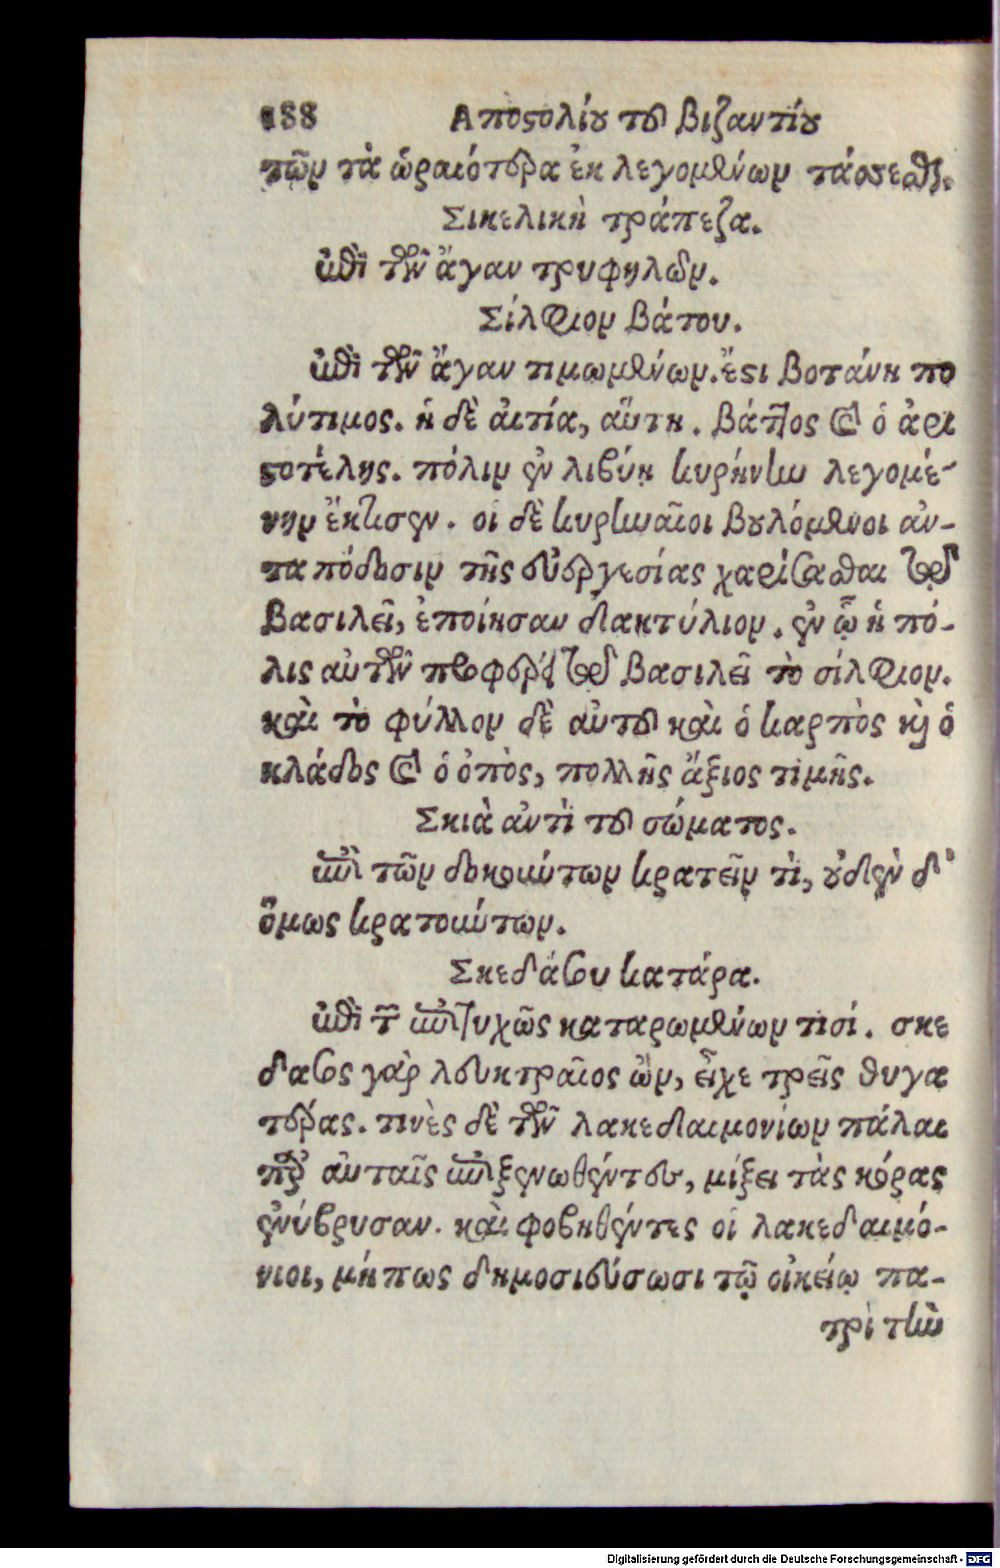 188 Αποστολίου τοῦ βιζαντίου
τῶν τὰ ὡραιότερα ἐκ λεγομένων τάσσεσθαι.
Σικελικὴ τράπεζα.
ἐπὶ τῶν ἄγαν τρυφηλῶν.
Σίλφιον βάτου.
ἐπὶ τῶν ἄγαν τιμωμένων. ἔστι βοτάνη πο
λύτιμος. ἡ δὲ αἰτία, αὕτη. βάττος καὶ ὁ ἀρι
στοτέλης. πόλιν ἐν λιβύῃ κυρήνην λεγομέ-
νην ἔκτισεν. οἱ δὲ κυρηναῖοι βουλόμενοι ἀν-
ταπόδοσιν τῆς εὐεργεσίας χαρίσασθαι τῷ
βασιλεῖ, ἐποίησαν δακτύλιον. ἐν ᾧ ἡ πό-
λις αὐτῶν προφέρει τῷ βασιλεῖ τὸ σίλφιον.
καὶ τὸ φύλλον δὲ αὐτοῦ καὶ ὁ καρπὸς καὶ ὁ
κλάδος καὶ ὁ ὀπὸς, πολλῆς ἄξιος τιμῆς.
Σκιὰ ἀντὶ τοῦ σώματος.
ἐπὶ τῶν δοκούντων κρατεῖν τὶ, οὐδὲν δ'
ὅμως κρατούντων.
Σκεδάσου κατάρα.
ἐπὶ τῶν ἐπιτυχῶς καταρωμένων τισί. σκε
δασος γὰρ λευκτραῖος ὢν, εἶχε τρεῖς θυγα
τέρας. τινὲς δὲ τῶν λακεδαιμονίων πάλαι
παρ' αὐταῖς ἐπιξενωθέντες, μίξει τὰς κόρας
ἐνύβρυσαν. καὶ φοβηθέντες οἱ λακεδαιμό-
νιοι, μήπως δημοσιεύσωσι τῷ οἰκείῳ πα-
τρὶ τὴν
Digitalisierung gefördert durch die Deutsche Forschungsgemeinschaft - DFG